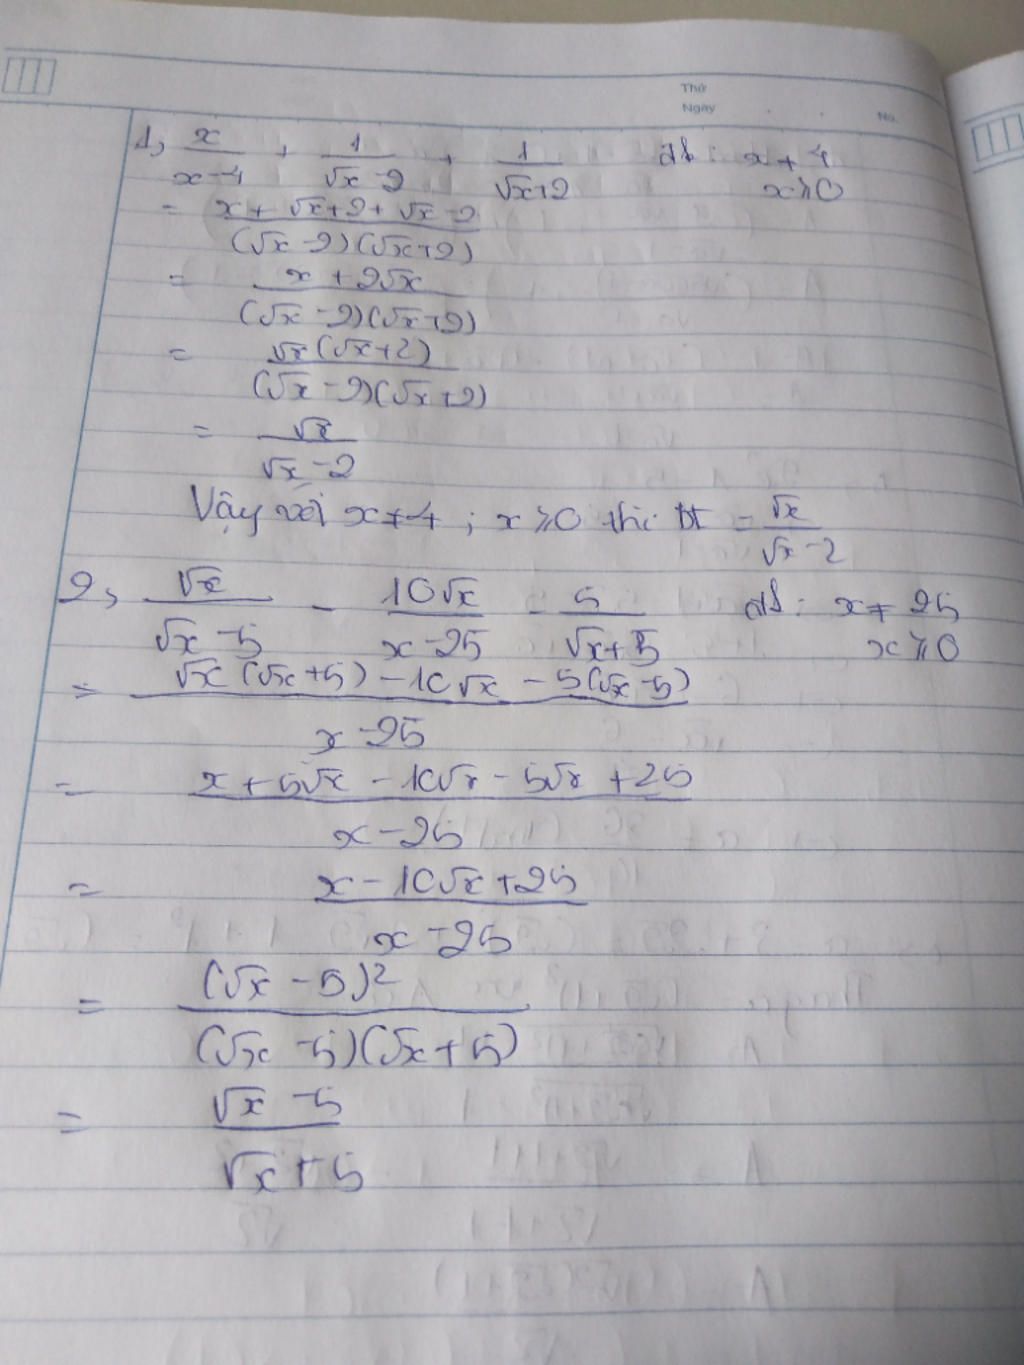 Thứ
Ngày No.
1, x/(x-4) + 1/(√x-2) + 1/(√x+2) đk: x ≠ 4
x ≥ 0
= (x+√x+2+√x-2)/((√x-2)(√x+2))
= (x+2√x)/((√x-2)(√x+2))
= (√x(√x+2))/((√x-2)(√x+2))
= √x/(√x-2)
Vậy với x≠4 ; x ≥0 thì bt = √x/(√x-2)
2, √x/(√x-5) - 10√x/(x-25) - 5/(√x+5) đk: x ≠ 25
x ≥ 0
= (√x(√x+5)-10√x-5(√x-5))/(x-25)
= (x+5√x-10√x-5√x+25)/(x-25)
= (x-10√x+25)/(x-25)
= (√x-5)²/((√x-5)(√x+5))
= (√x-5)/(√x+5)